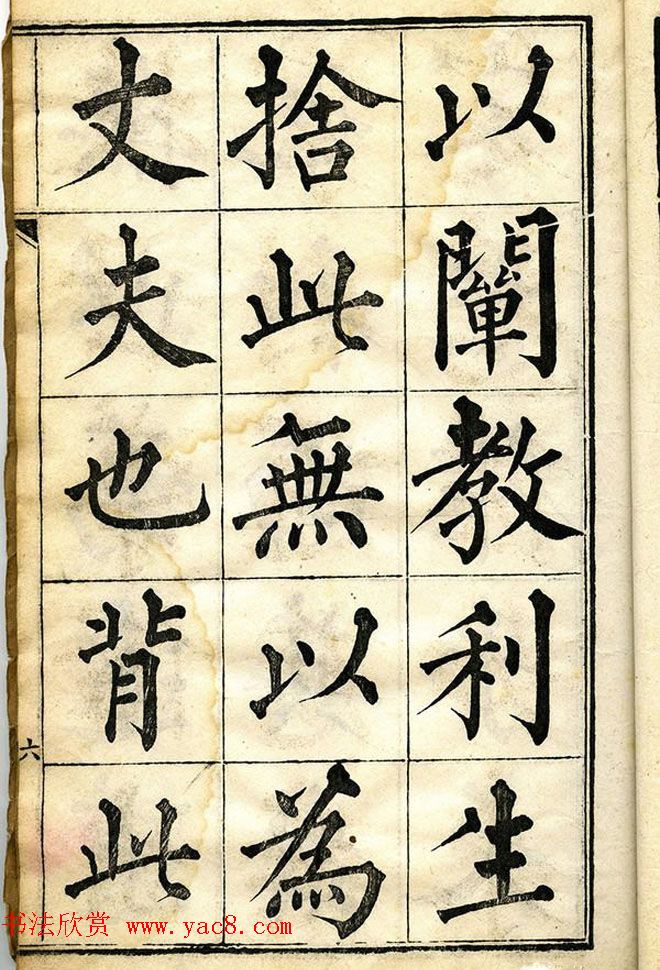 以闡教利生
捨此無以為
丈夫也背此
六
书法欣赏 www.yac8.com